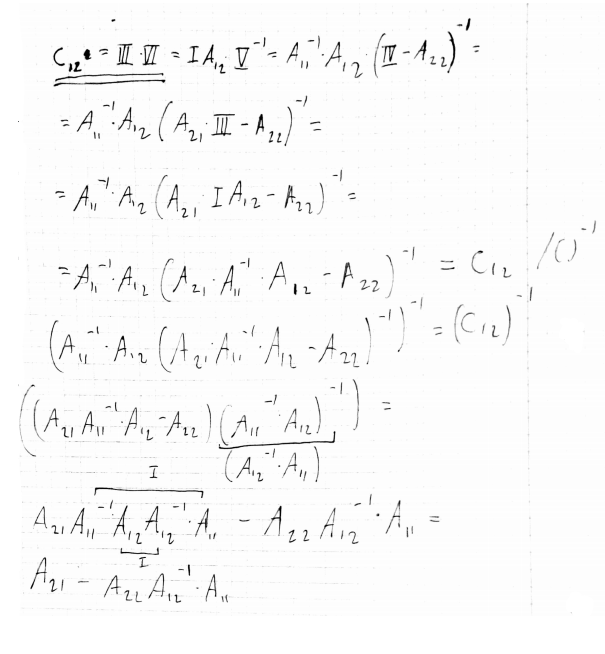 C₁₂ = III · VI = I A₁₂ V⁻¹ = A₁₁⁻¹ · A₁₂ (IV - A₂₂)⁻¹ =
= A₁₁⁻¹ · A₁₂ (A₂₁ III - A₂₂)⁻¹ =
= A₁₁⁻¹ · A₁₂ (A₂₁ I A₁₂ - A₂₂)⁻¹ =
= A₁₁⁻¹ · A₁₂ (A₂₁ · A₁₁⁻¹ · A₁₂ - A₂₂)⁻¹ = C₁₂ /()⁻¹
(A₁₁⁻¹ · A₁₂ (A₂₁ · A₁₁⁻¹ · A₁₂ - A₂₂)⁻¹)⁻¹ = (C₁₂)⁻¹
((A₂₁ A₁₁⁻¹ · A₁₂ - A₂₂) (A₁₁⁻¹ · A₁₂)⁻¹) =
(A₁₂⁻¹ · A₁₁)
I
A₂₁ A₁₁⁻¹ A₁₂ A₁₂⁻¹ · A₁₁ - A₂₂ A₁₂⁻¹ · A₁₁ =
I
A₂₁ - A₂₂ A₁₂⁻¹ · A₁₁